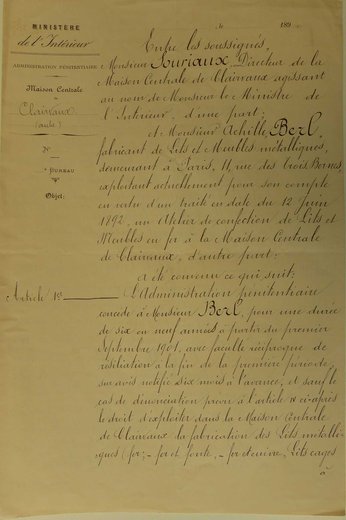 MINISTÈRE
de l'Intérieur
ADMINISTRATION PÉNITENTIAIRE
Maison Centrale
d
Clairvaux
(aube)
N°
BUREAU
Objet:
189
Entre les soussignés,
Monsieur Souriaux, Directeur de la
Maison Centrale de Clairvaux agissant
au nom de Monsieur le Ministre de
l'Intérieur, d'une part;
et Monsieur Achille Berl,
fabricant de Lits et Meubles métalliques,
demeurant à Paris, 11, rue des Trois Bornes,
exploitant actuellement pour son compte
en vertu d'un traité en date du 12 Juin
1892, un Atelier de confection de Lits et
Meubles en fer à la Maison Centrale
de Clairvaux, d'autre part:
a été convenu ce qui suit:
Article 1er
L'Administration pénitentiaire
concède à Monsieur Berl, pour une durée
de six ou neuf années à partir du premier
Septembre 1901, avec faculté réciproque de
résiliation à la fin de la première période,
sur avis notifié six mois à l'avance, et sauf le
cas de dénonciation prévu à l'article ci-après
le droit d'exploiter dans la Maison Centrale
de Clairvaux la fabrication des Lits métalli-
ques (fer, - fer et fonte, - fer et cuivre, Lits cages